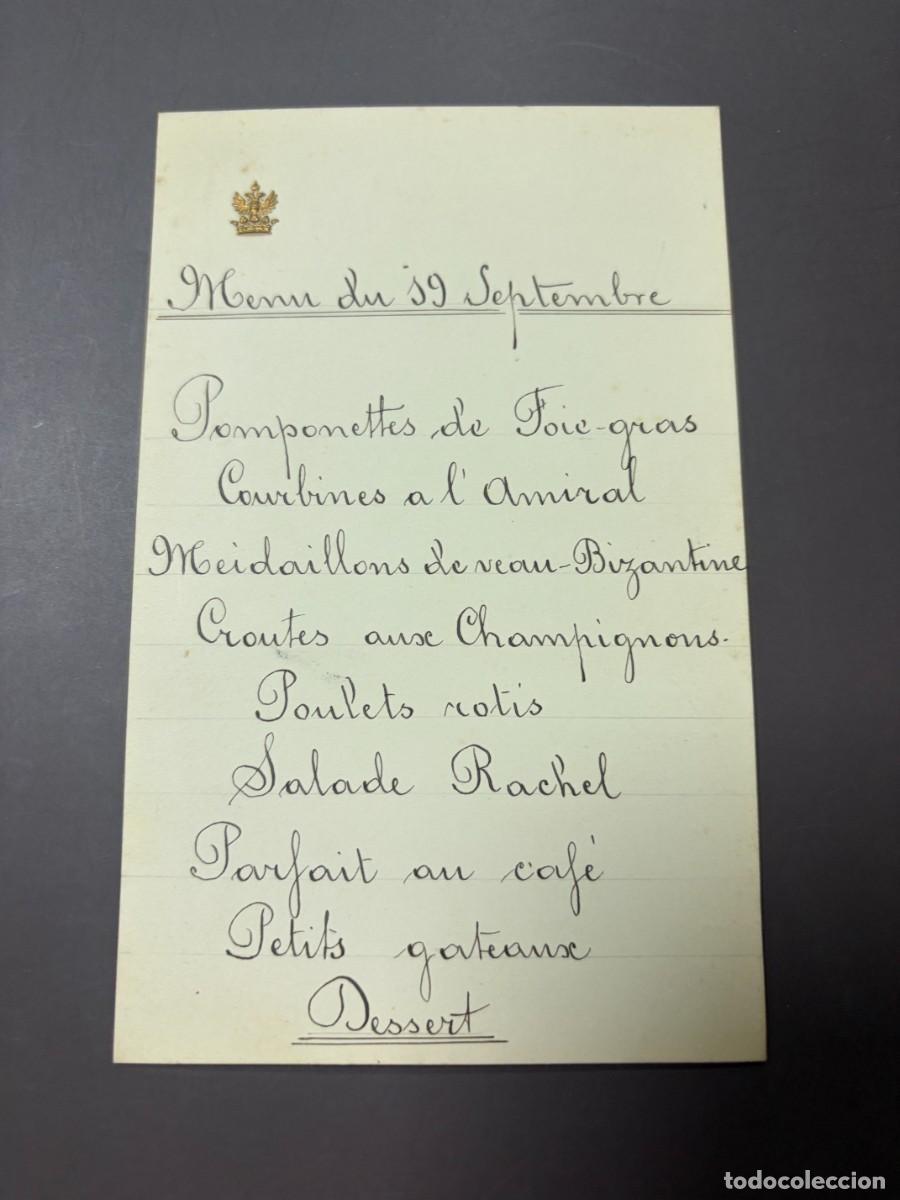 Menu du 19 Septembre
Pomponettes de Foie-gras
Courbines a l'Amiral
Meidaillons de veau-Bizantine
Croutes aux Champignons.
Poulets rotis
Salade Rachel
Parfait au café
Petits gateaux
Dessert
todocoleccion